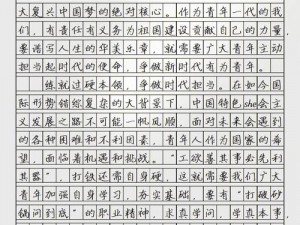 大复兴中国梦的绝对核心。作为青年一代的我
们，有责任有义务为祖国建设贡献自己的力量，
要谱写人生的华美乐章，就需要广大青年主动
担当起时代的使命，争做新时代有为青年。
练就过硬本领，争做时代担当。在如今国
际形势错综复杂的大背景下，中国特色she会主
义发展之路不可能一帆风顺，面对未来会遇到
的各种困难和不利因素，青年人作为国家的希
望，面临着机遇和挑战。“工欲善其事必先利
其器”，打铁还需自身硬。这就要求我们广大
青年加强自身学习，夯实基础，要有“打破砂
锅问到底”的职业精神，求真学问，学真本事，